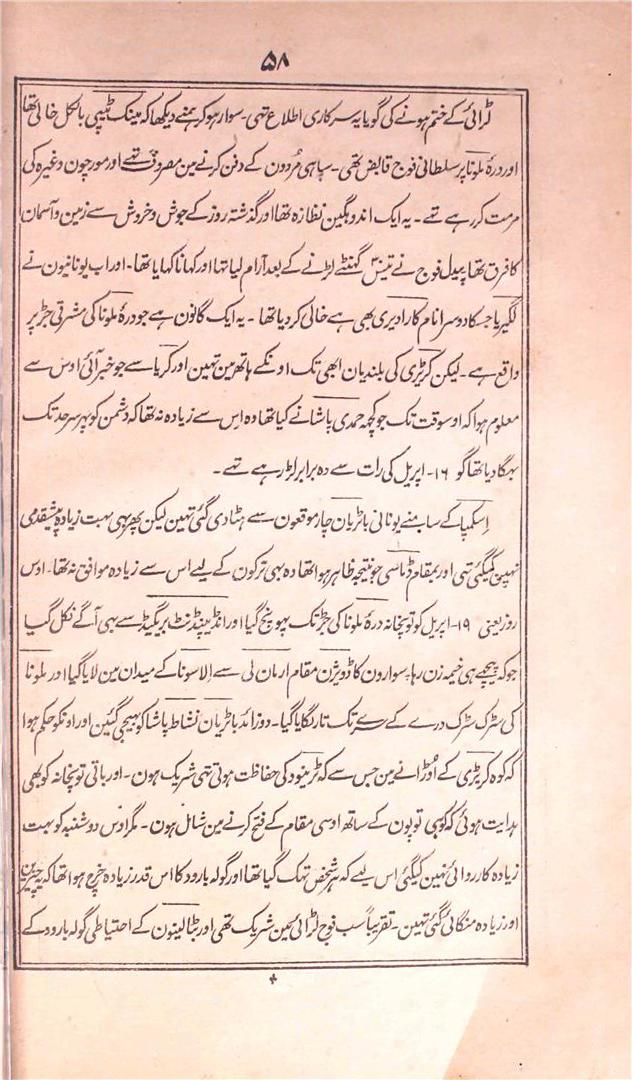 ۵۸
لڑائی کے ختم ہونے کی گویا یہ سرکاری اطلاع تہی۔ سوار ہو کر ہمنے دیکھا کہ مینک ٹیپی بالکل خالی تھا
اور درۂ ملونا پر سلطانی فوج قابض تھی۔ سپاہی مُردون کے دفن کرنے مین مصروف تھے اور مورچون وغیرہ کی
مرمت کر رہے تھے۔ یہ ایک اندوہگین نظارہ تھا اور گذشتہ روز کے جوش و خروش سے زمین و آسمان
کا فرق تھا پیدل فوج نے تیس ۳۰ گھنٹے لڑنے کے بعد آرام لیا تہا اور کہانا کہایا تھا۔ اور اب یونانیون نے
لگیریا جسکا دوسرا نام کارادیری بھی ہے خالی کر دیا تھا۔ یہ ایک گانون ہے جو درۂ ملونا کی مشرقی جڑ پر
واقع ہے۔ لیکن کرٹیری کی بلندیان ابھی تک اونکے ہاتھ مین تہین اور کریا سے جو خبر آئی اوس سے
معلوم ہوا کہ اوسوقت تک جو کچھ حمدی پاشا نے کیا تھا وہ اس سے زیادہ نہ تھا کہ دشمن کو پہر سرحد تک
بہگا دیا تھا گو ۱۶۔ اپریل کی رات سے وہ برابر لڑ رہے تھے۔
اِسکمپا کے سامنے یونانی باٹریان چار موقعون سے ہٹا دی گئی تہین لیکن پھر بہی بہت زیادہ پیشقدمی
نہین کیگئی تہی اور بمقام ڈماسی جو نتیجہ ظاہر ہوا تھا وہ بہی ترکون کے لیے اس سے زیادہ موافق نہ تھا۔ اوس
روز یعنی ۱۹۔ اپریل کو توپخانہ درۂ ملونا کی جڑ تک پہونچ گیا اور انڈیپنڈنٹ بریگیڈ سے بہی آگے نکل گیا
جو کہ پیچھے ہی خیمہ زن رہا۔ سوارون کا ڈویژن مقام ارمان لی سے الاسونا کے میدان مین لایا گیا اور ملونا
کی سڑک سڑک درے کے سرے تک تار لگایا گیا۔ دو زائد باٹریان نشاط پاشا کو بہیجی گئین اور اونکو حکم ہوا
کہ کوہ کرٹیری کے اوڑانے مین جس سے کہ ٹرینود کی حفاظت ہوتی تہی شریک ہون۔ اور باقی توپخانہ کو بھی
ہدایت ہوئی کہ کوہی توپون کے ساتھ اوسی مقام کے فتح کرنے مین شامل ہون۔ مگر اوس دوشنبہ کو بہت
زیادہ کارروائی نہین کیگئی اس لیے کہ ہر شخص تہک گیا تھا اور گولہ بارود کا اس قدر زیادہ خرچ ہوا تھا کہ چیزین
اور زیادہ منگائی گئی تہین۔ تقریباً سب فوج لڑائی مین شریک تھی اور بٹالینون کے احتیاطی گولہ بارود کے